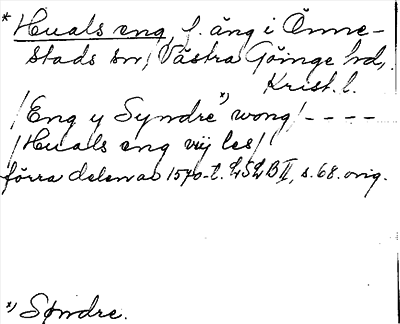 * Huals eng, f. äng i Önne-
stads sn, Västra Göinge hd,
Krist. l.
/Eng y Syndre *) wong/ - - - -
/Huals eng vij les/
förra delen av 1570-t. LSLB II, s. 68. orig.
*) Søndre.